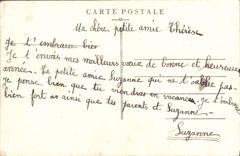 CARTE POSTALE
Ma chère petite amie Thérèse
Je t'embrasse bien
Je t'envois mes meilleurs vœux de bonne et heureuse
année. Ta petite amie Suzanne qui ne t'oublie pas.
je pense bien que tu viendras en vacances. Je t'embrasse
bien fort ainsi que tes parents et Suzanne
Suzanne